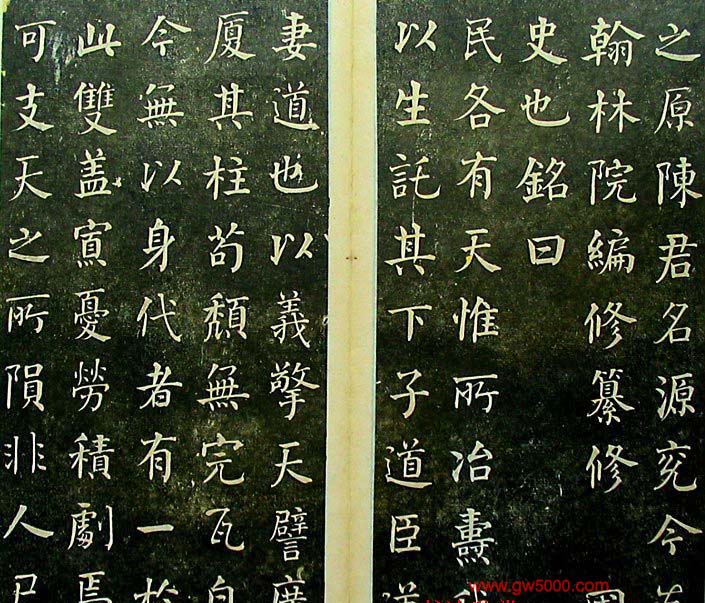 之原陳君名源兖今
翰林院編修纂修
史也銘曰
民各有天惟所冶燾
以生託其下子道臣道
妻道也以義擎天譬廣
厦其柱苟頹無完瓦自
今無以身代者有一於
此雙盖寅憂勞積劇焉
可支天之所隕非人尸
www.gw5000.com